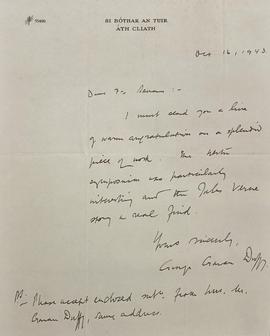 81 BÓTHAR AN TUIR
ÁTH CLIATH
Oct 16, 1943.
Dear Fr. Senan :-
I must send you a line
of warm congratulation on a splendid
piece of work. The
symposium was particularly
interesting and the Jules Verne
story a real find.
Yours sincerely,
George Gavan Duffy.
PS:- Please accept enclosed subs. from Mrs.
Gavan Duffy, same address.